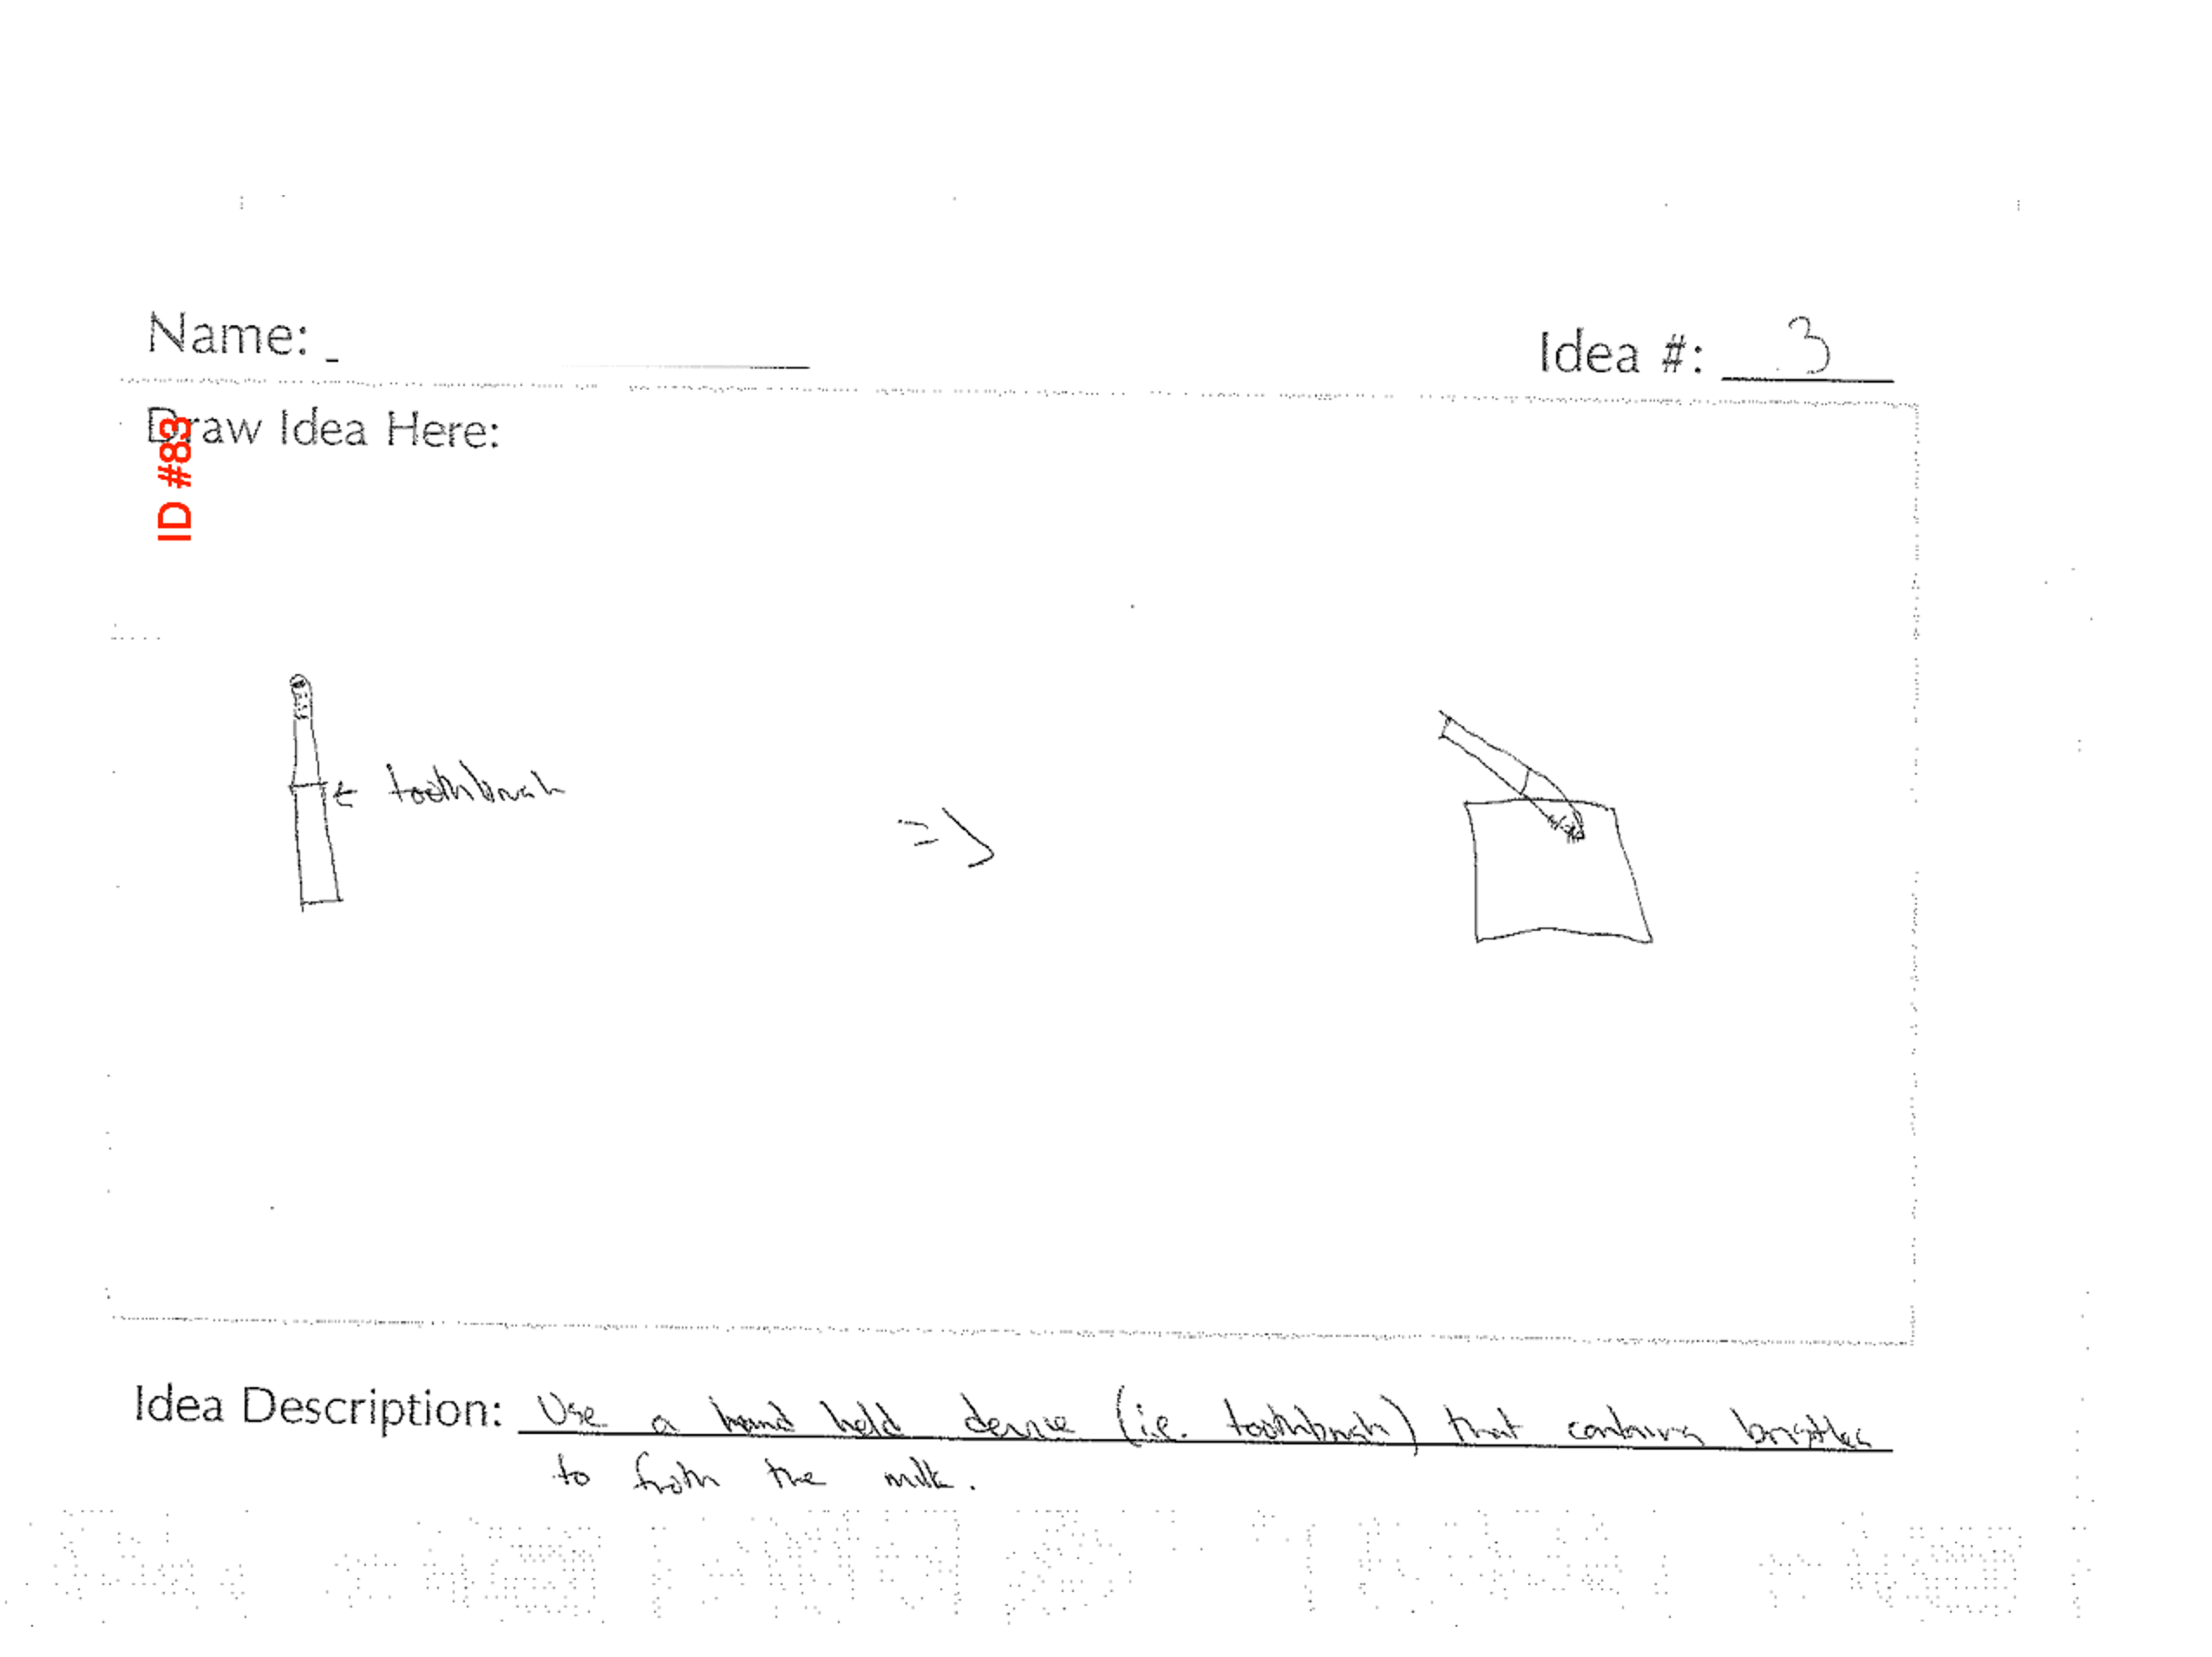 Name:
Idea #: 3
Draw Idea Here:
ID #83
← toothbrush
=>
Idea Description: Use a hand held device (i.e. toothbrush) that contains bristles
to froth the milk.